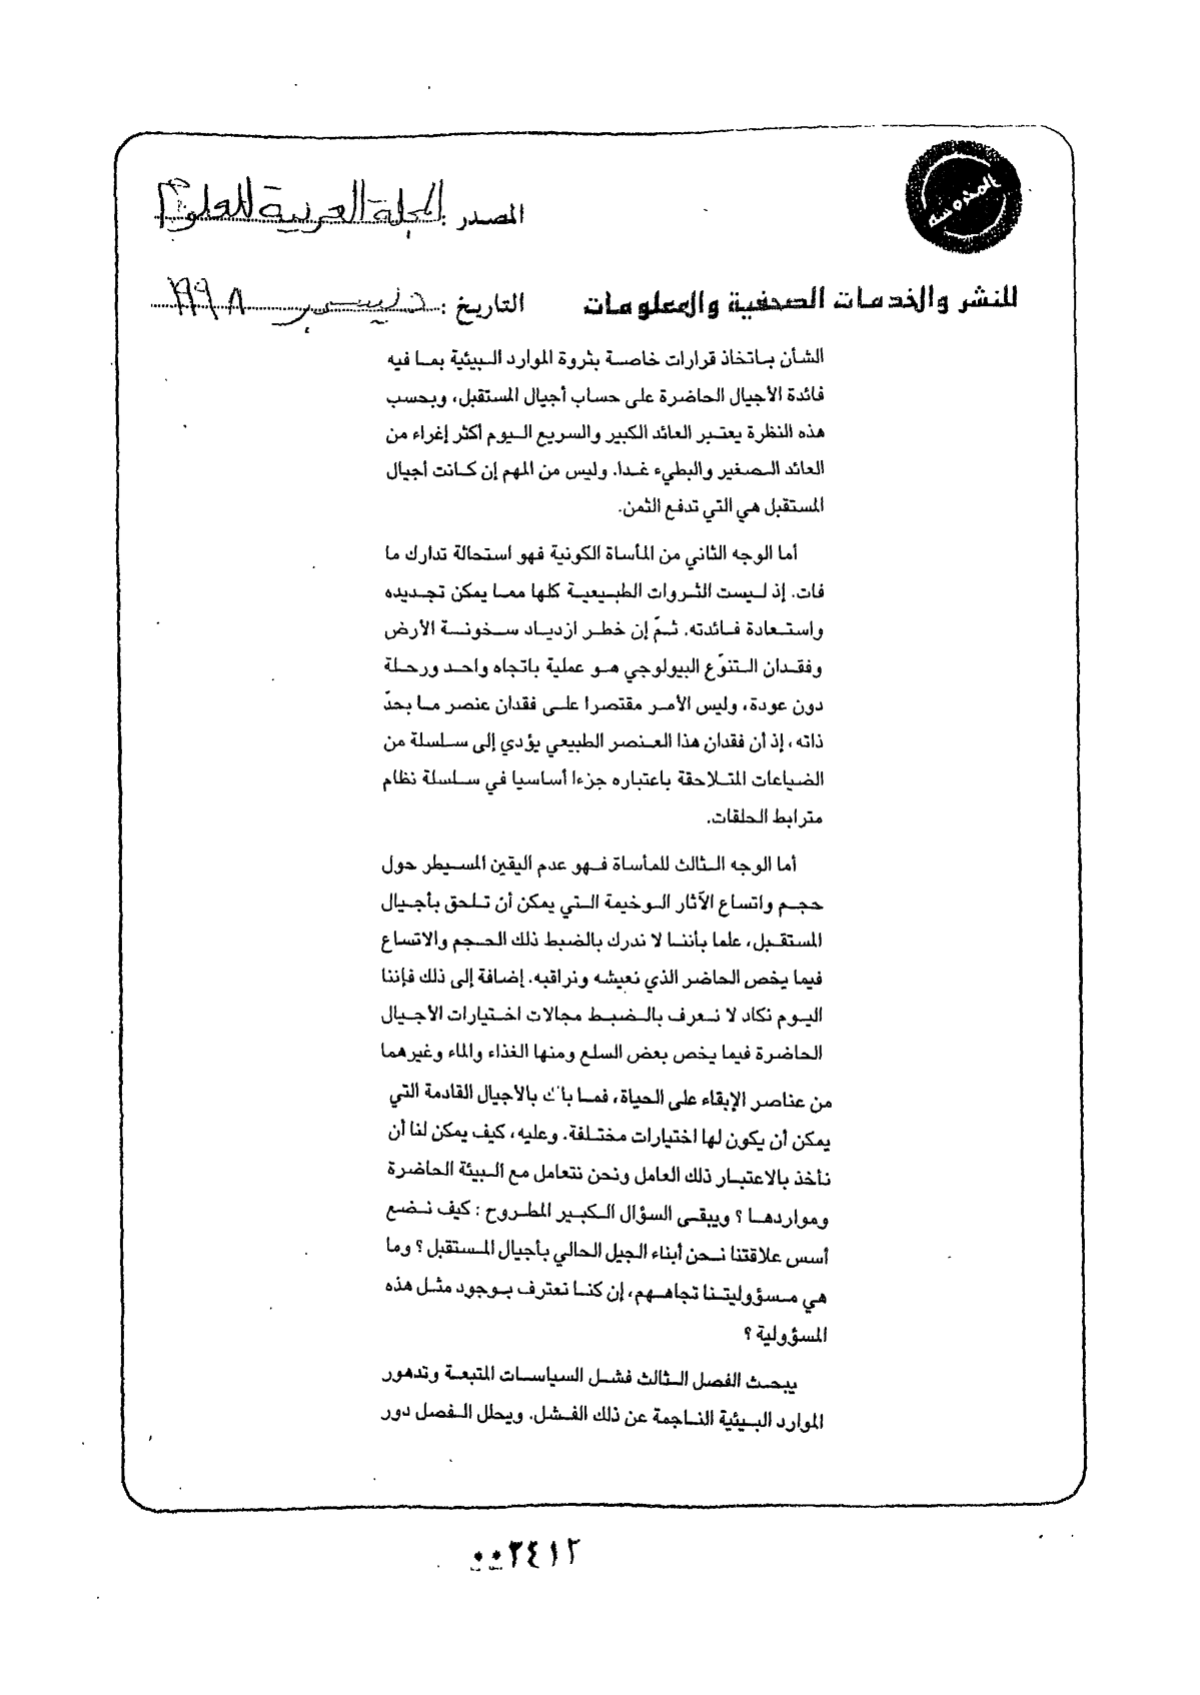 المصدر : المجلة العربية للعلوم
للنشر والخدمات الصحفية والمعلومات
التاريخ : ديسمبر ١٩٩٨
الشأن باتخاذ قرارات خاصة بثروة الموارد البيئية بما فيه
فائدة الأجيال الحاضرة على حساب أجيال المستقبل، وبحسب
هذه النظرة يعتبر العائد الكبير والسريع اليوم أكثر إغراء من
العائد الصغير والبطيء غدا. وليس من المهم إن كانت أجيال
المستقبل هي التي تدفع الثمن.
أما الوجه الثاني من المأساة الكونية فهو استحالة تدارك ما
فات. إذ ليست الثروات الطبيعية كلها مما يمكن تجديده
واستعادة فائدته. ثمّ إن خطر ازدياد سخونة الأرض
وفقدان التنوّع البيولوجي هو عملية باتجاه واحد ورحلة
دون عودة، وليس الأمر مقتصرا على فقدان عنصر ما بحدّ
ذاته، إذ أن فقدان هذا العنصر الطبيعي يؤدي إلى سلسلة من
الضياعات المتلاحقة باعتباره جزءا أساسيا في سلسلة نظام
مترابط الحلقات.
أما الوجه الثالث للمأساة فهو عدم اليقين المسيطر حول
حجم واتساع الآثار الوخيمة التي يمكن أن تلحق بأجيال
المستقبل، علما بأننا لا ندرك بالضبط ذلك الحجم والاتساع
فيما يخص الحاضر الذي نعيشه ونراقبه. إضافة إلى ذلك فإننا
اليوم نكاد لا نعرف بالضبط مجالات اختيارات الأجيال
الحاضرة فيما يخص بعض السلع ومنها الغذاء والماء وغيرهما
من عناصر الإبقاء على الحياة، فما بالك بالأجيال القادمة التي
يمكن أن يكون لها اختيارات مختلفة. وعليه، كيف يمكن لنا أن
نأخذ بالاعتبار ذلك العامل ونحن نتعامل مع البيئة الحاضرة
ومواردها ؟ ويبقى السؤال الكبير المطروح : كيف نضع
أسس علاقتنا نحن أبناء الجيل الحالي بأجيال المستقبل ؟ وما
هي مسؤوليتنا تجاههم، إن كنا نعترف بوجود مثل هذه
المسؤولية ؟
يبحث الفصل الثالث فشل السياسات المتبعة وتدهور
الموارد البيئية الناجمة عن ذلك الفشل. ويحلل الفصل دور
٠٠٢٤١٢